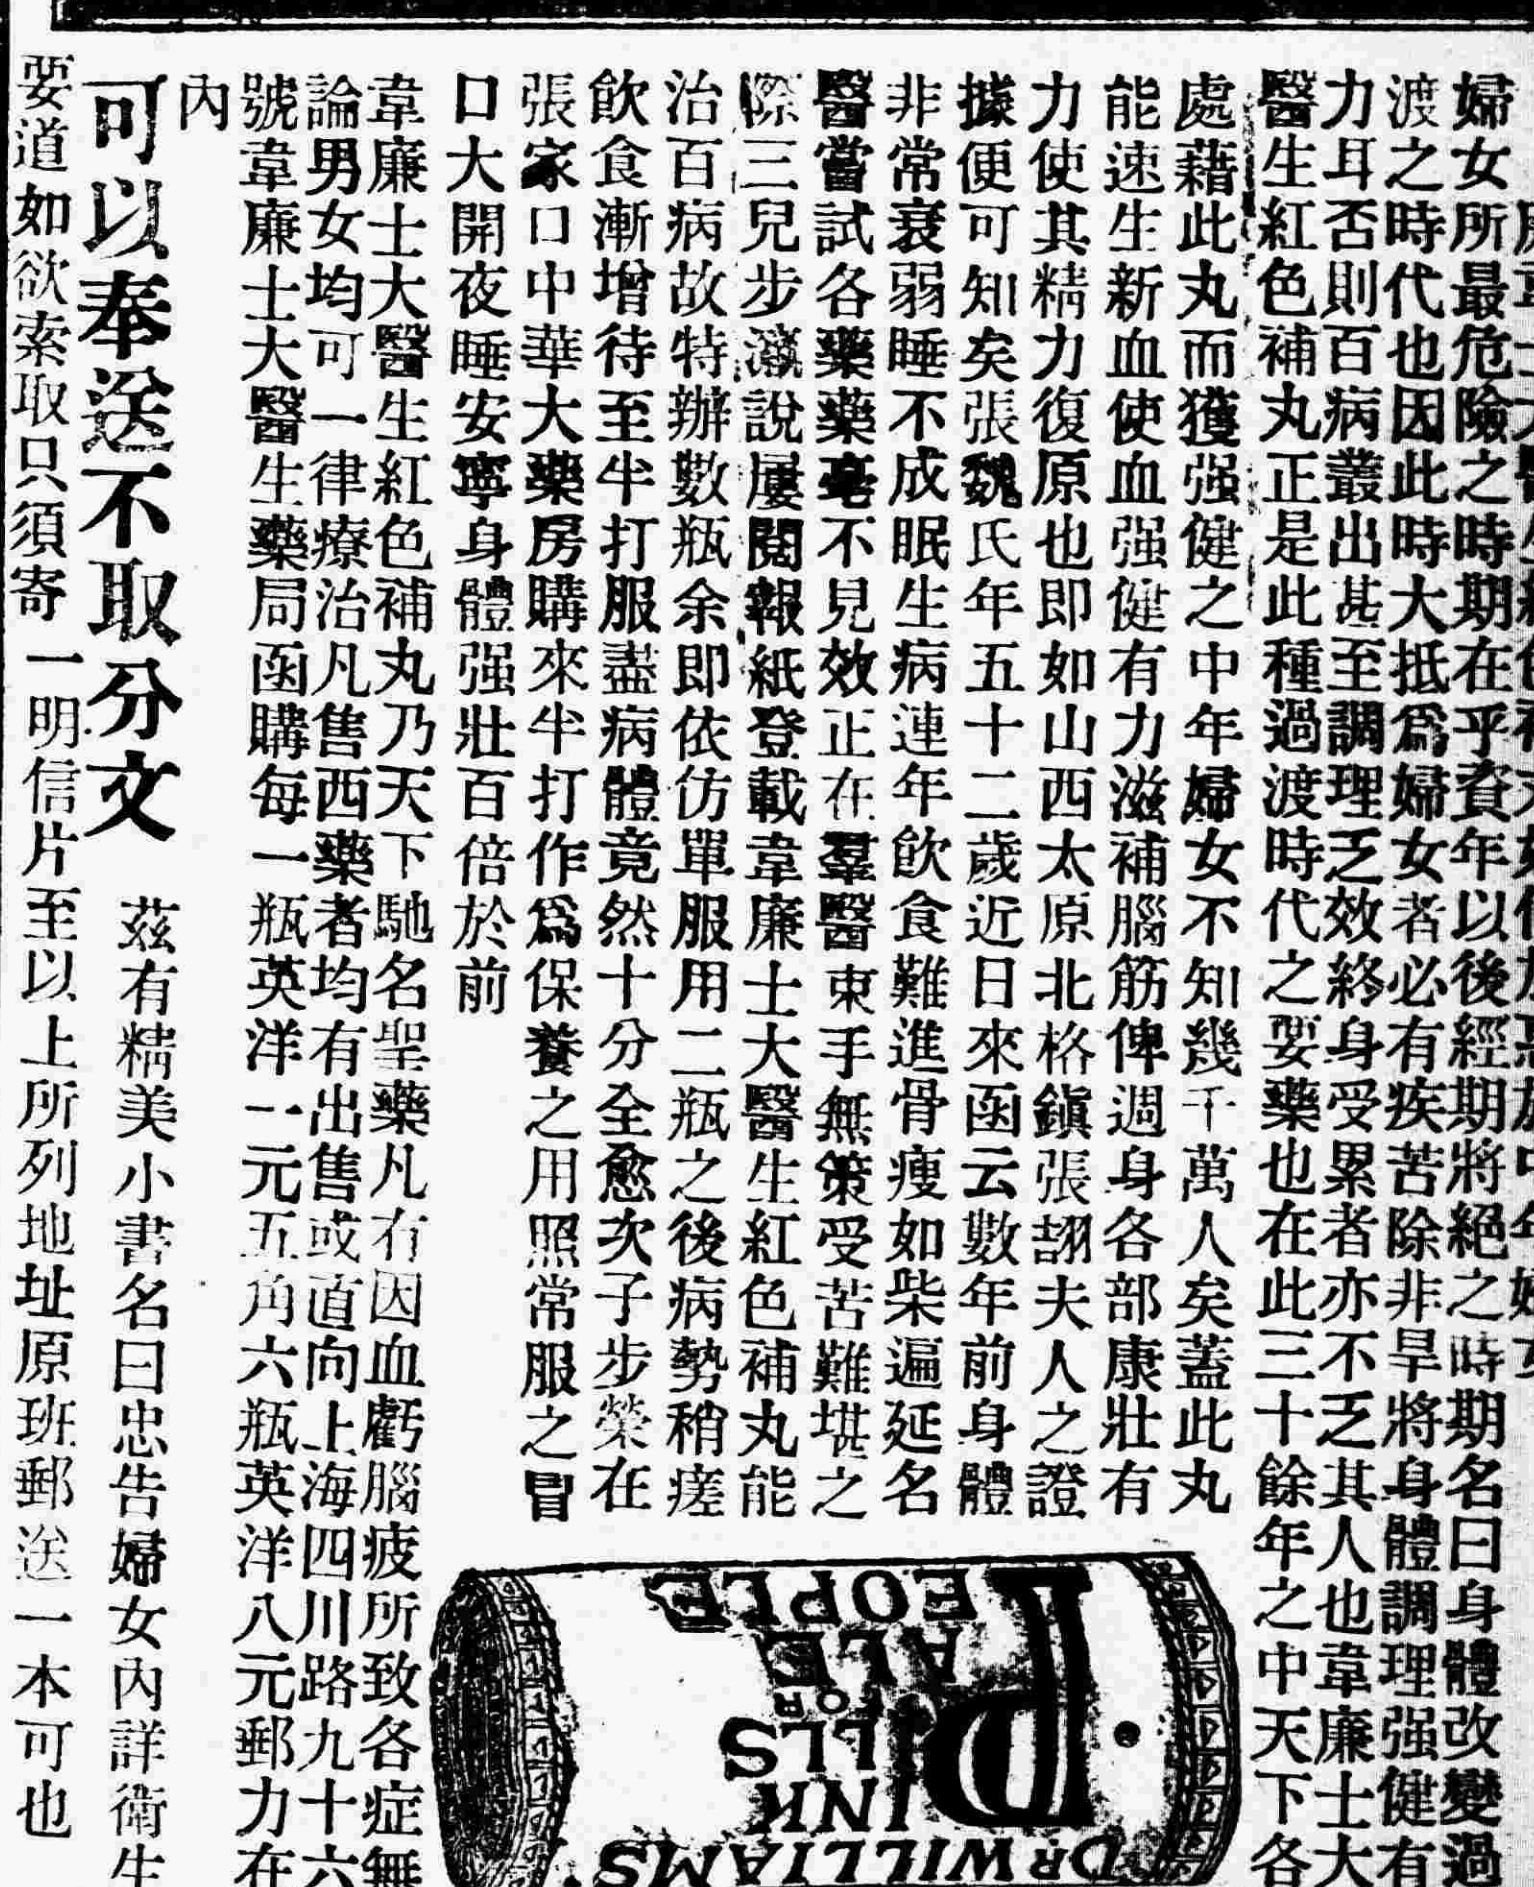 婦女所最危險之時期在乎資年以後經期將絕之時期名曰身體改變過
渡之時代也因此時大抵爲婦女者必有疾苦除非早將身體調理强健有
力耳否則百病叢出甚至調理乏效終身受累者亦不乏其人也韋廉士大
醫生紅色補丸正是此種過渡時代之要藥也在此三十餘年之中天下各
處藉此丸而獲强健之中年婦女不知幾千萬人矣蓋此丸
能速生新血使血强健有力滋補腦筋俾週身各部康壯有
力使其精力復原也即如山西太原北格鎭張翮夫人之證
據便可知矣張魏氏年五十二歲近日來函云數年前身體
非常衰弱睡不成眠生病連年飲食難進骨瘦如柴遍延名
醫嘗試各藥藥毫不見效正在羣醫束手無策受苦難堪之
際三兒步瀛說屢閱報紙登載韋廉士大醫生紅色補丸能
治百病故特辦數瓶余即依仿單服用二瓶之後病勢稍瘥
飲食漸增待至半打服盡病體竟然十分全愈次子步榮在
張家口中華大藥房購來半打作爲保養之用照常服之胃
口大開夜睡安寧身體强壯百倍於前
韋廉士大醫生紅色補丸乃天下馳名聖藥凡有因血虧腦疲所致各症無
論男女均可一律療治凡售西藥者均有出售或直向上海四川路九十六
號韋廉士大醫生藥局函購每一瓶英洋一元五角六瓶英洋八元郵力在
內
可以奉送不取分文 茲有精美小書名曰忠告婦女內詳衛生
要道如欲索取只須寄一明信片至以上所列地址原班郵送一本可也
DR WILLIAMS'
PINK
PILLS
FOR
PALE
PEOPLE